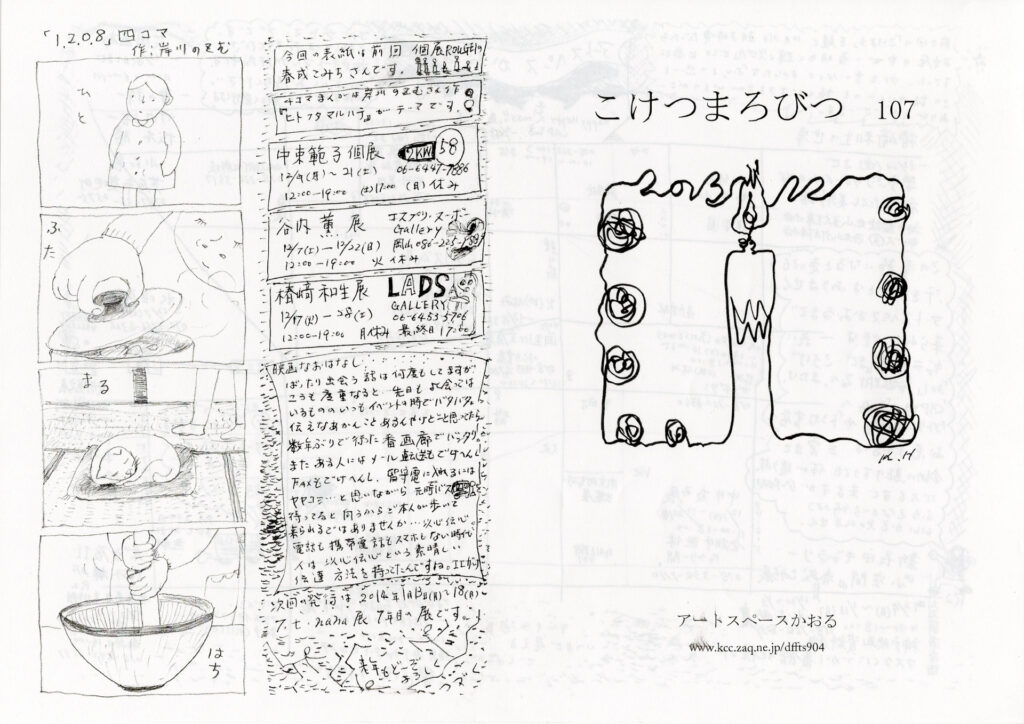 「1.2.0.8」四コマ
ひと
ふた
まる
はち
今回の表紙は前回 個展の
春成こみちさんです。
4コマまんがは岸川のぞむさん作
『ヒトフタマルハチ』がテーマです。
中東範子個展 2KW 58
12/9(月)〜21(土) 06-6447-7886
12:00-19:00 (土)17:00 (日)休み
谷内 薫 展 エスプリ・ヌーボー
Gallery
12/7(土)-12/22(日) 岡山086-225-
12:00-19:00 火 休み
楢崎和生展 LADS
GALLERY
12/17(火)-28(土) 06-6453-5706
12:00-19:00 月休み 最終日 17:00
映画なおはなし…
ばったり出会う話は何度もしてますが
こうも度重なると…先日も よく会っては
いるもののいつもイベントの時でバタバタ。
伝えなあかんことあるんやけどと思ってたら
数年ぶりで行った春画廊でバッタリ。
またある人にはメール 転送もできへんし
FAXもでけへんし、留守電に入れるには
ヤヤコシ…と思いながら 元町バス
待ってると向うからご本人が歩いて
来られるではありませんか…以心伝心
電話も携帯電話もスマホもない時代
人は以心伝心という素晴しい
伝達方法を持ってたんですね。
次回の発行は 2014年1月13日(月)〜18(月)
7.t.nana展 7年目の展です。
来年もどーぞ
よろし
こけつまろびつ 107
2013 12
アートスペースかおる
www.kcc.zaq.ne.jp/dffts904